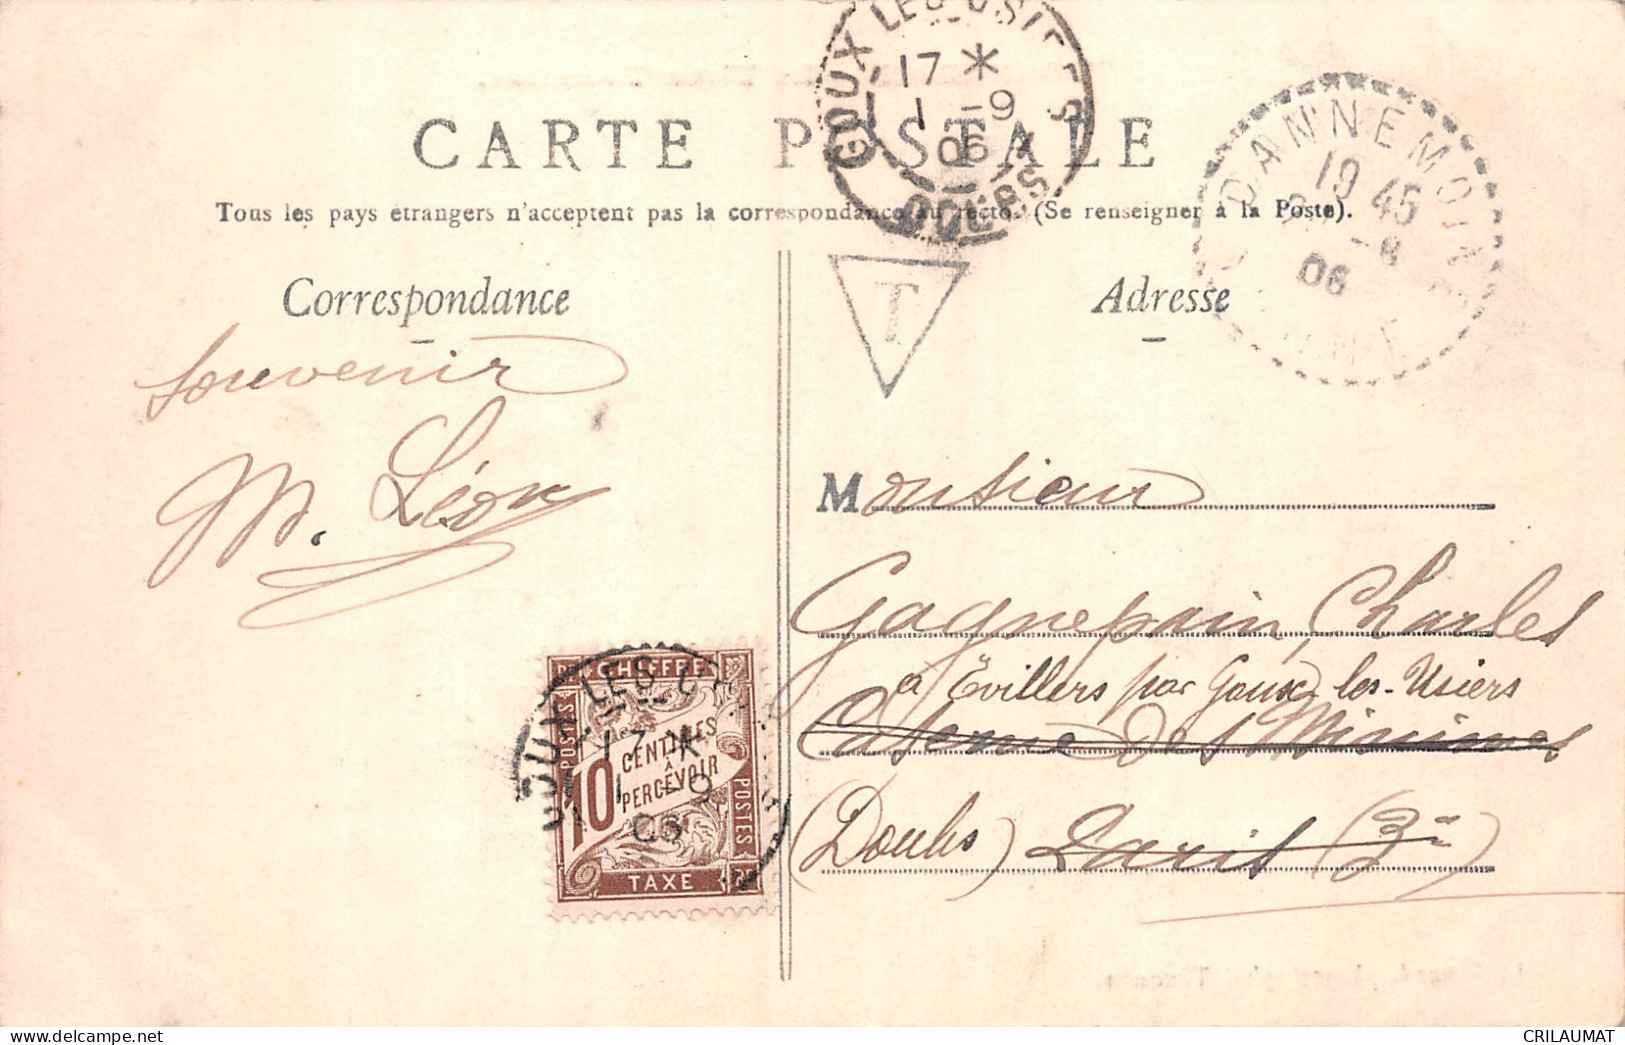 GOUX LES USIERS
17 *
1 -9
06
DOUBS
CARTE POSTALE
Tous les pays étrangers n'acceptent pas la correspondance au recto. (Se renseigner à la Poste).
DANNEMOINE
19 45
-8
06
YONNE
T
Correspondance
Adresse
Souvenir
M. Léon
Monsieur
Gagnepain Charles
à Évillers par Goux-les-Usiers
Caserne des Minimes
(Doubs) Paris (3e)
CHIFFRE
POSTES
10
CENTIMES
À
PERCEVOIR
POSTES
TAXE
GOUX LES
17 *
1 -9
06
CRILAUMAT